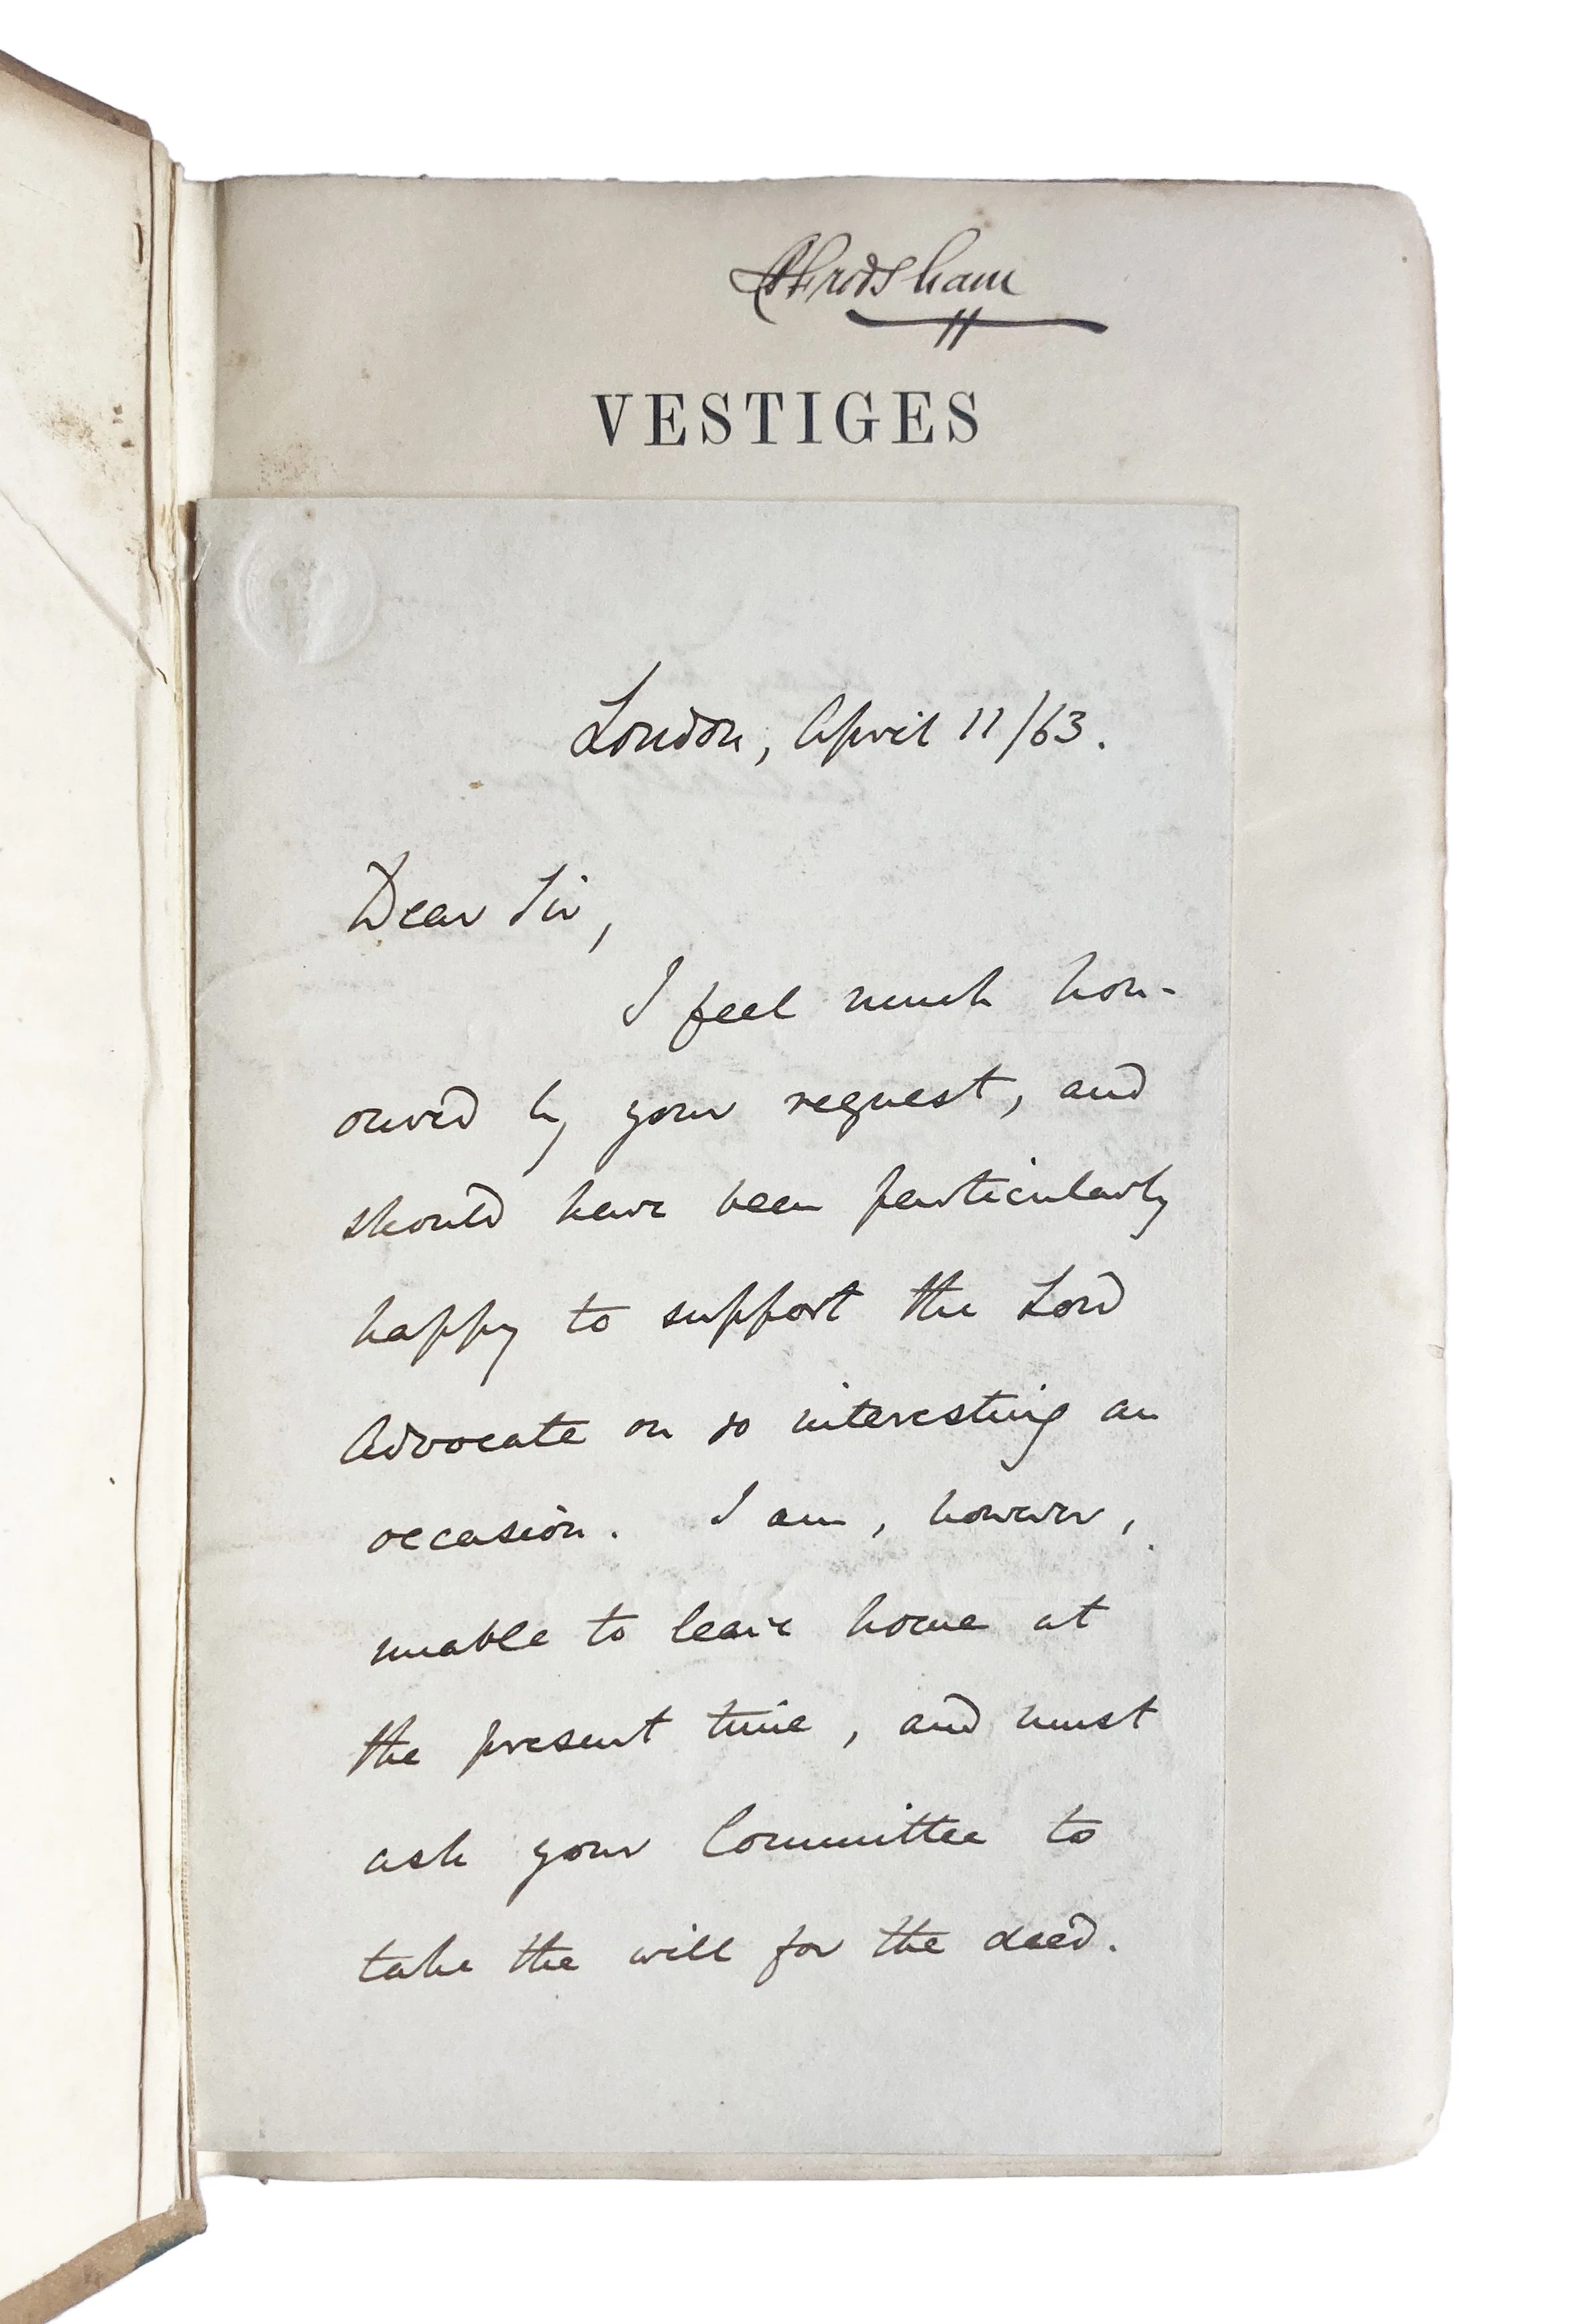 Frodsham
VESTIGES
London, April 11/63.
Dear Sir,
I feel much hon-
oured by your request, and
should have been particularly
happy to support the Lord
Advocate on so interesting an
occasion. I am, however,
unable to leave home at
the present time, and must
ask your Committee to
take the will for the deed.